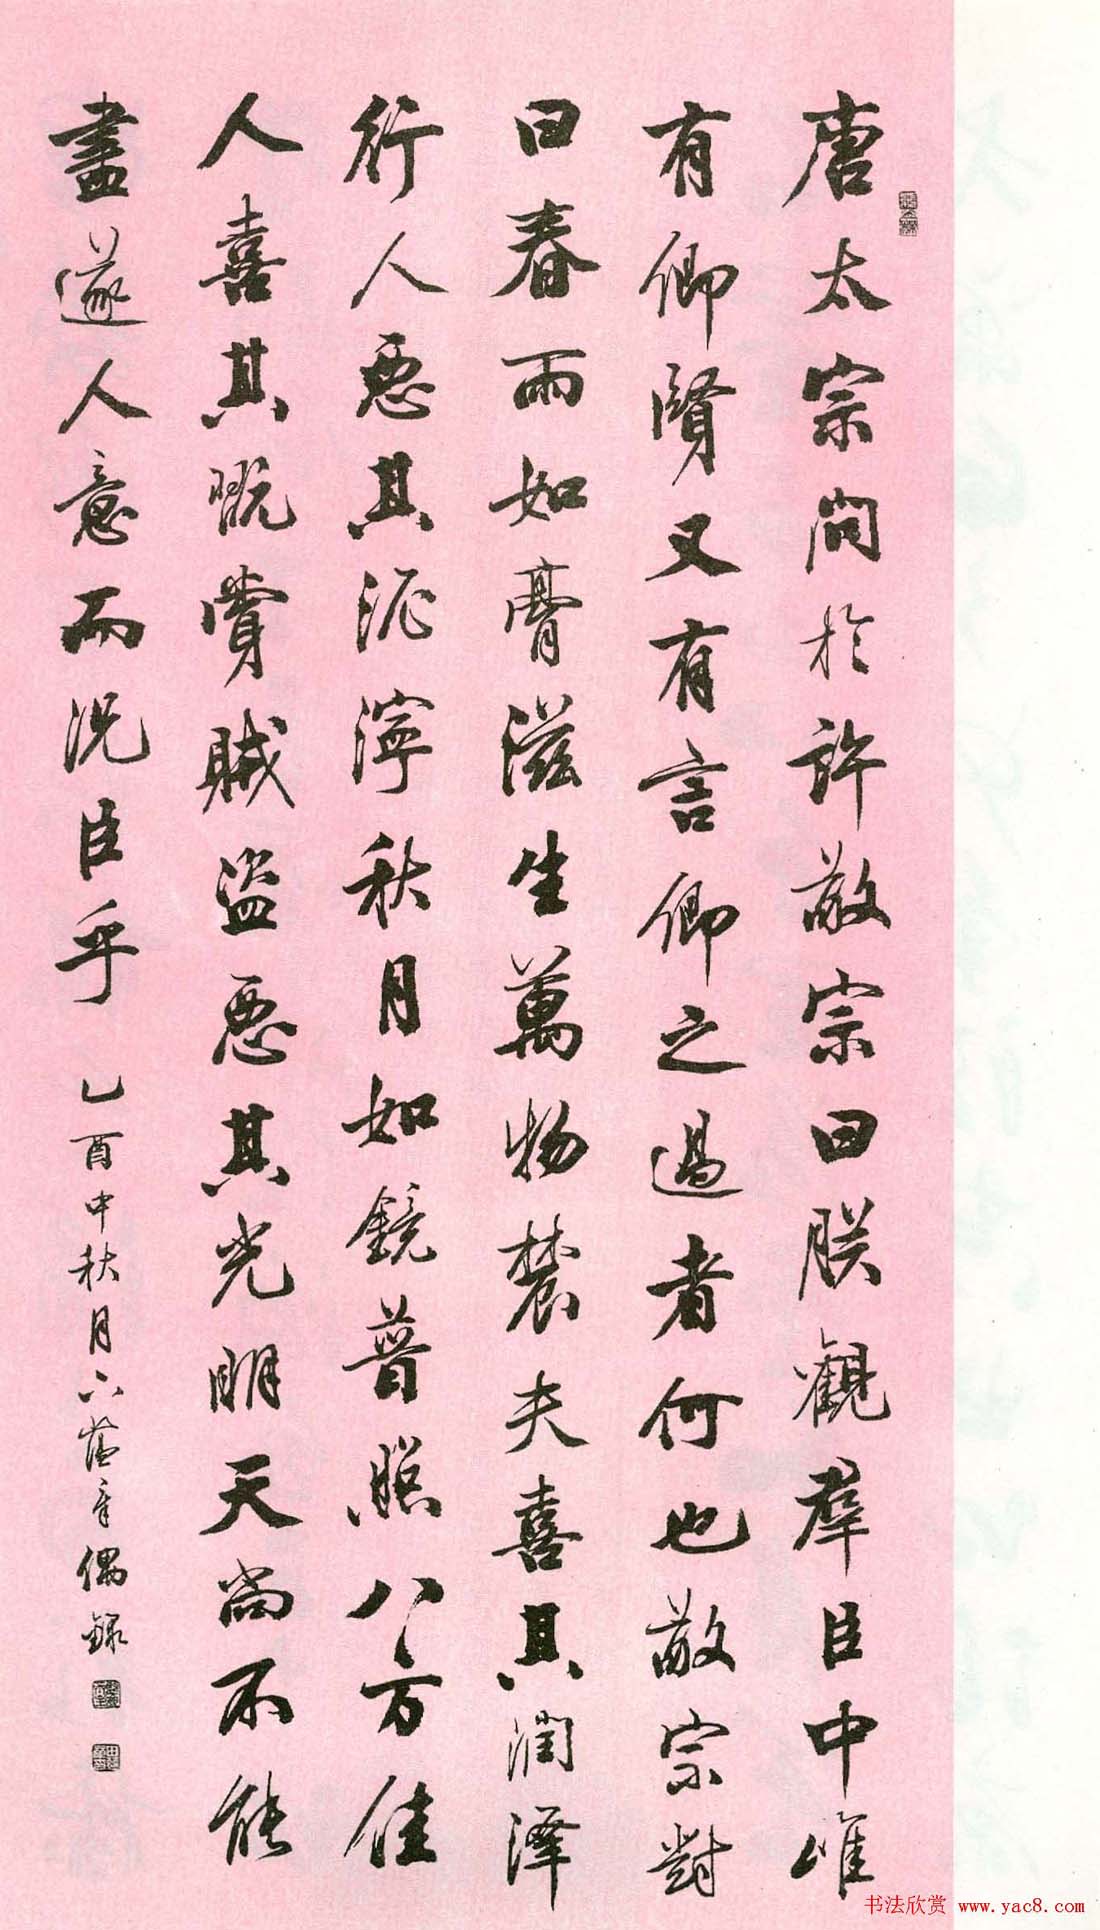 唐太宗问於許敬宗曰朕觀羣臣中唯
有卿賢又有言卿之過者何也敬宗對
曰春雨如膏滋生萬物農夫喜其潤澤
行人惡其泥濘秋月如鏡普照八方佳
人喜其玩賞賊盜惡其光明天尚不能
盡遂人意而况臣乎
乙酉中秋月 偶錄
书法欣赏 www.yac8.com